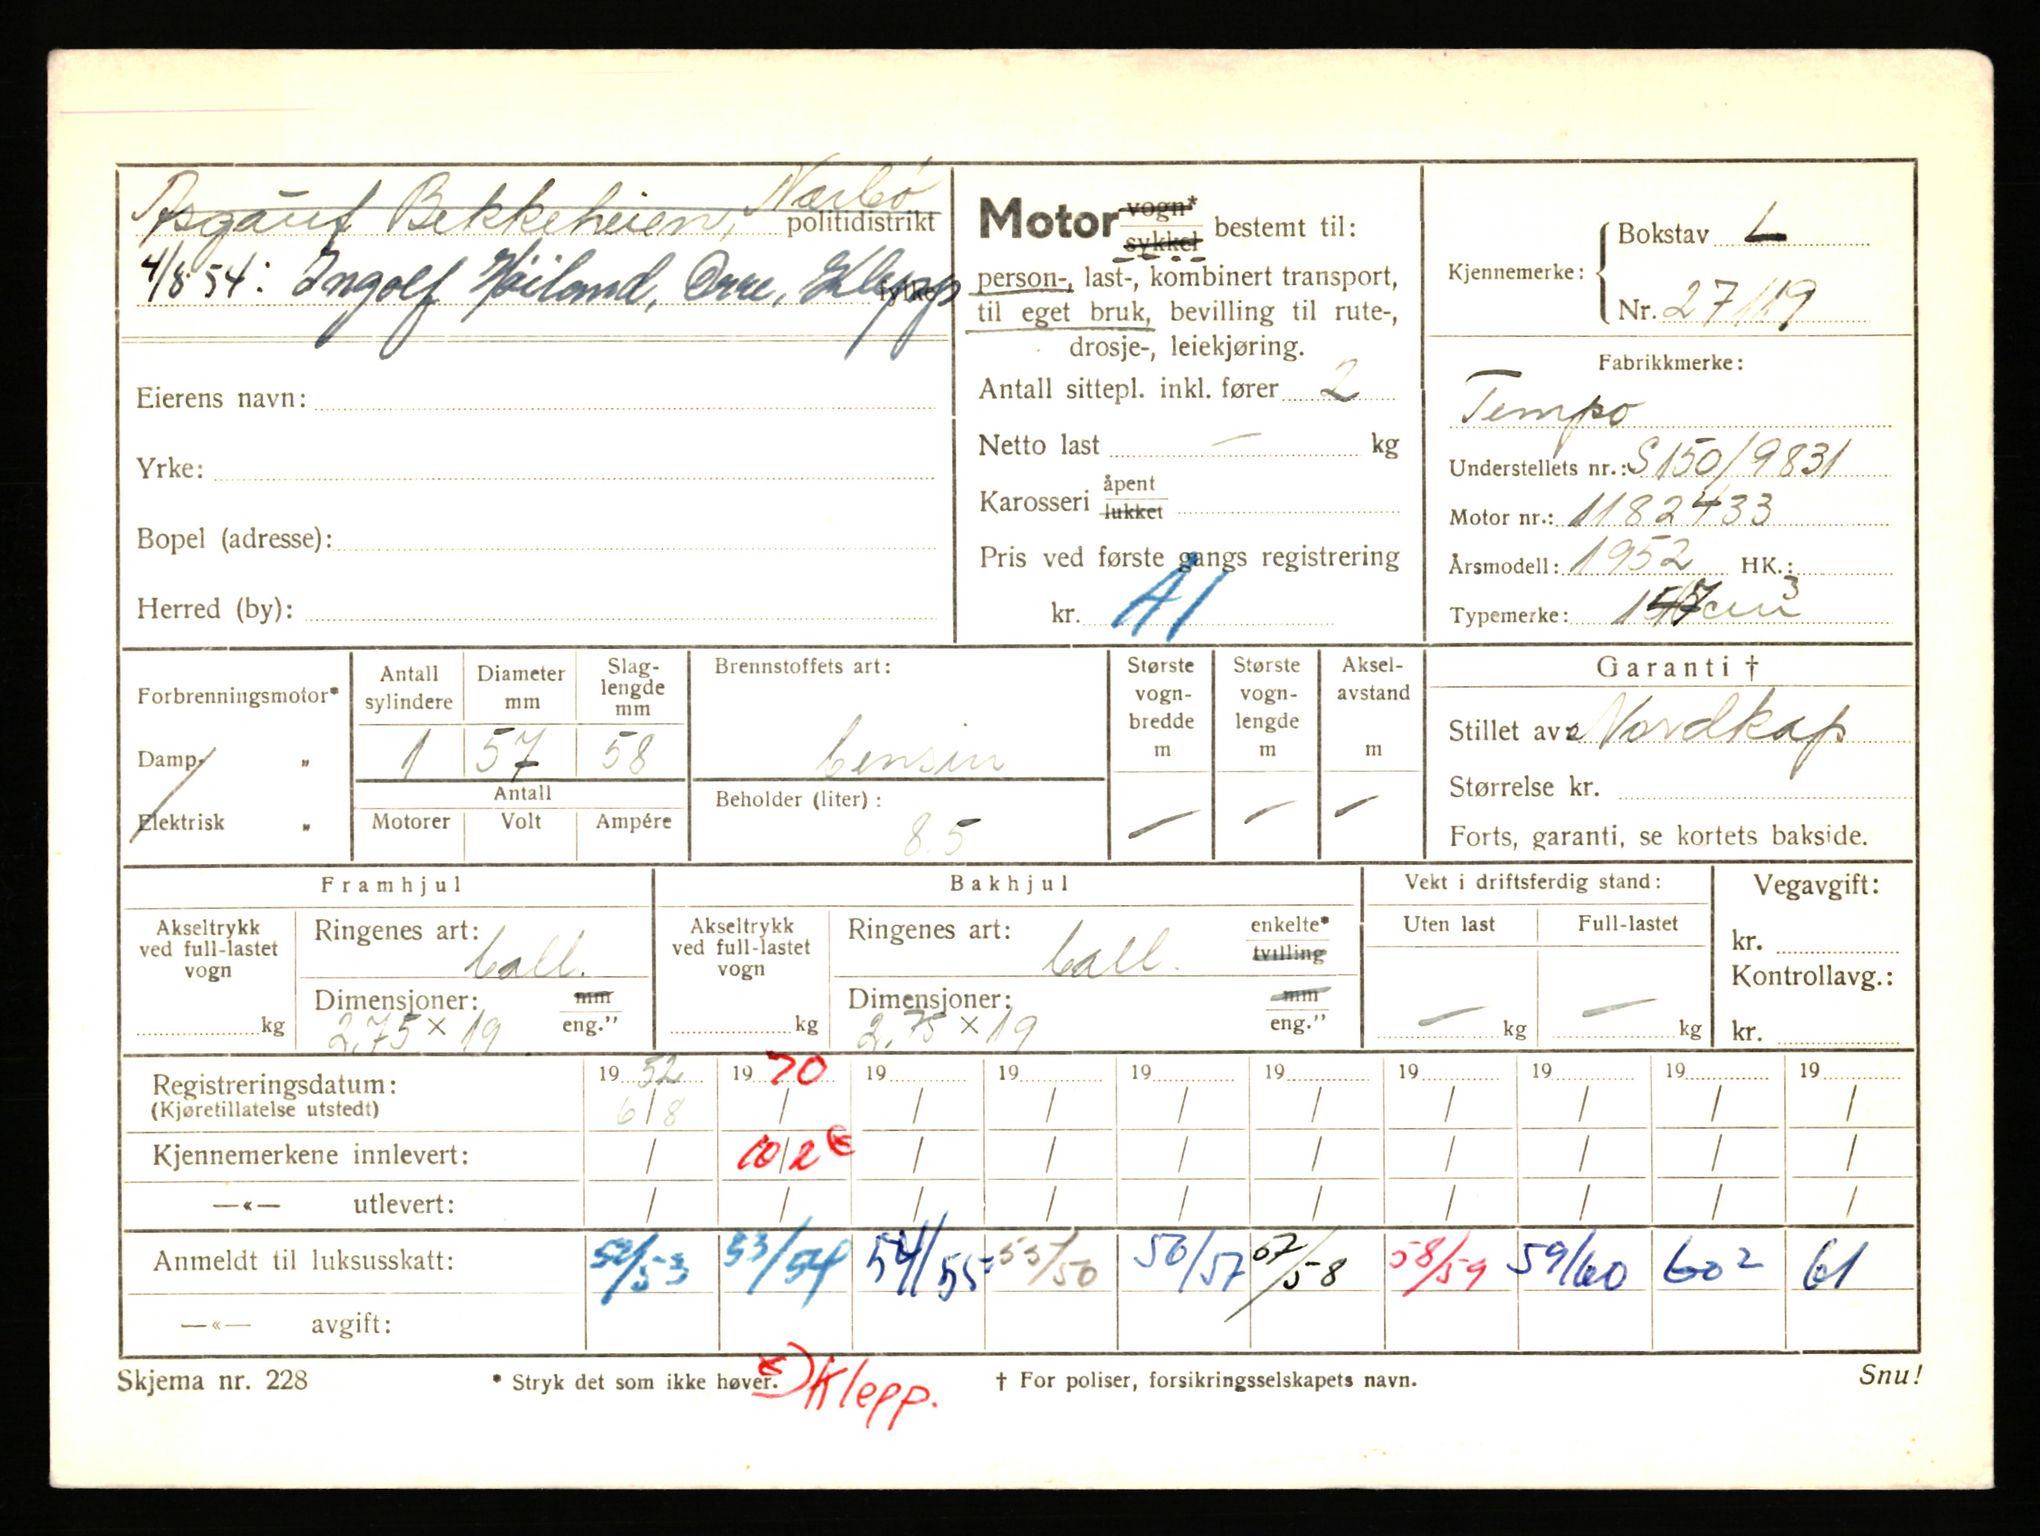 Bekkeheien, Nærbø
politidistrikt
4/8 54: Ingolf Høiland, Orre, Klepp
fylke
Eierens navn:
Yrke:
Bopel (adresse):
Herred (by):
Motor vogn* sykkel bestemt til:
person-, last-, kombinert transport,
til eget bruk, bevilling til rute-,
drosje-, leiekjøring.
Antall sittepl. inkl. fører 2
Netto last — kg
Karosseri åpent lukket
Pris ved første gangs registrering
kr. A1
Kjennemerke: Bokstav L
Nr.
Fabrikkmerke:
Tempo
Understellets nr.: S150/9831
Motor nr.: 1182433
Årsmodell: 1952 HK.:
Typemerke: cm3
Forbrenningsmotor*
Damp- „
Elektrisk „
Antall sylindere 1
Diameter mm 57
Slag-lengde mm 58
Antall
Motorer Volt Ampére
Brennstoffets art:
bensin
Beholder (liter):
8.5
Største vogn-bredde m —
Største vogn-lengde m —
Aksel-avstand m —
Garanti †
Stillet av: Nordkap
Størrelse kr.
Forts, garanti, se kortets bakside.
Framhjul
Akseltrykk ved full-lastet vogn
kg
Ringenes art: ball.
Dimensjoner: mm eng.”
2,75 × 19
Bakhjul
Akseltrykk ved full-lastet vogn
kg
Ringenes art: ball. enkelte* tvilling
Dimensjoner: mm eng.”
2,75 × 19
Vekt i driftsferdig stand:
Uten last Full-lastet
— kg — kg
Vegavgift:
kr.
Kontrollavg.:
kr.
Registreringsdatum: 19 52 19 70 19 19 19 19 19 19 19 19
(Kjøretillatelse utstedt) 6/8 / / / / / / / / /
Kjennemerkene innlevert: / 10/2 / / / / / / / /
—«— utlevert: / / / / / / / / / /
Anmeldt til luksusskatt: 52/53 53/54 54/55 55/56 56/57 57/58 58/59 59/60 60 2 61
—«— avgift:
Skjema nr. 228
* Stryk det som ikke høver.
*) Klepp.
† For poliser, forsikringsselskapets navn.
Snu!